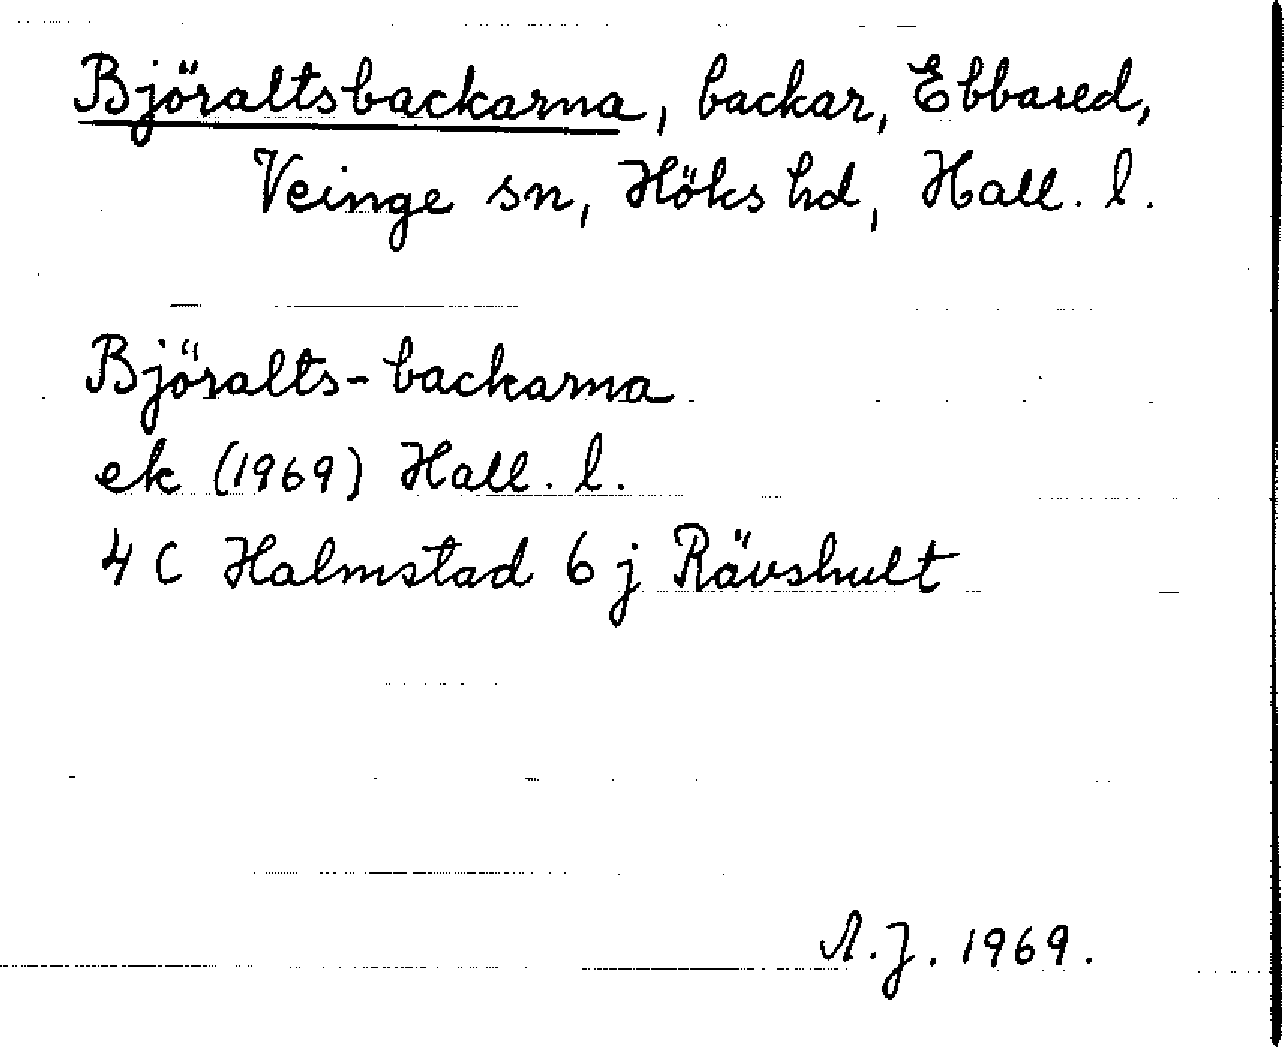 Björaltsbackarna, backar, Ebbared,
Veinge sn, Höks hd, Hall. l.
Björalts-backarna
ek (1969) Hall. l.
4 C Halmstad 6 j Rävshult
A.J. 1969.